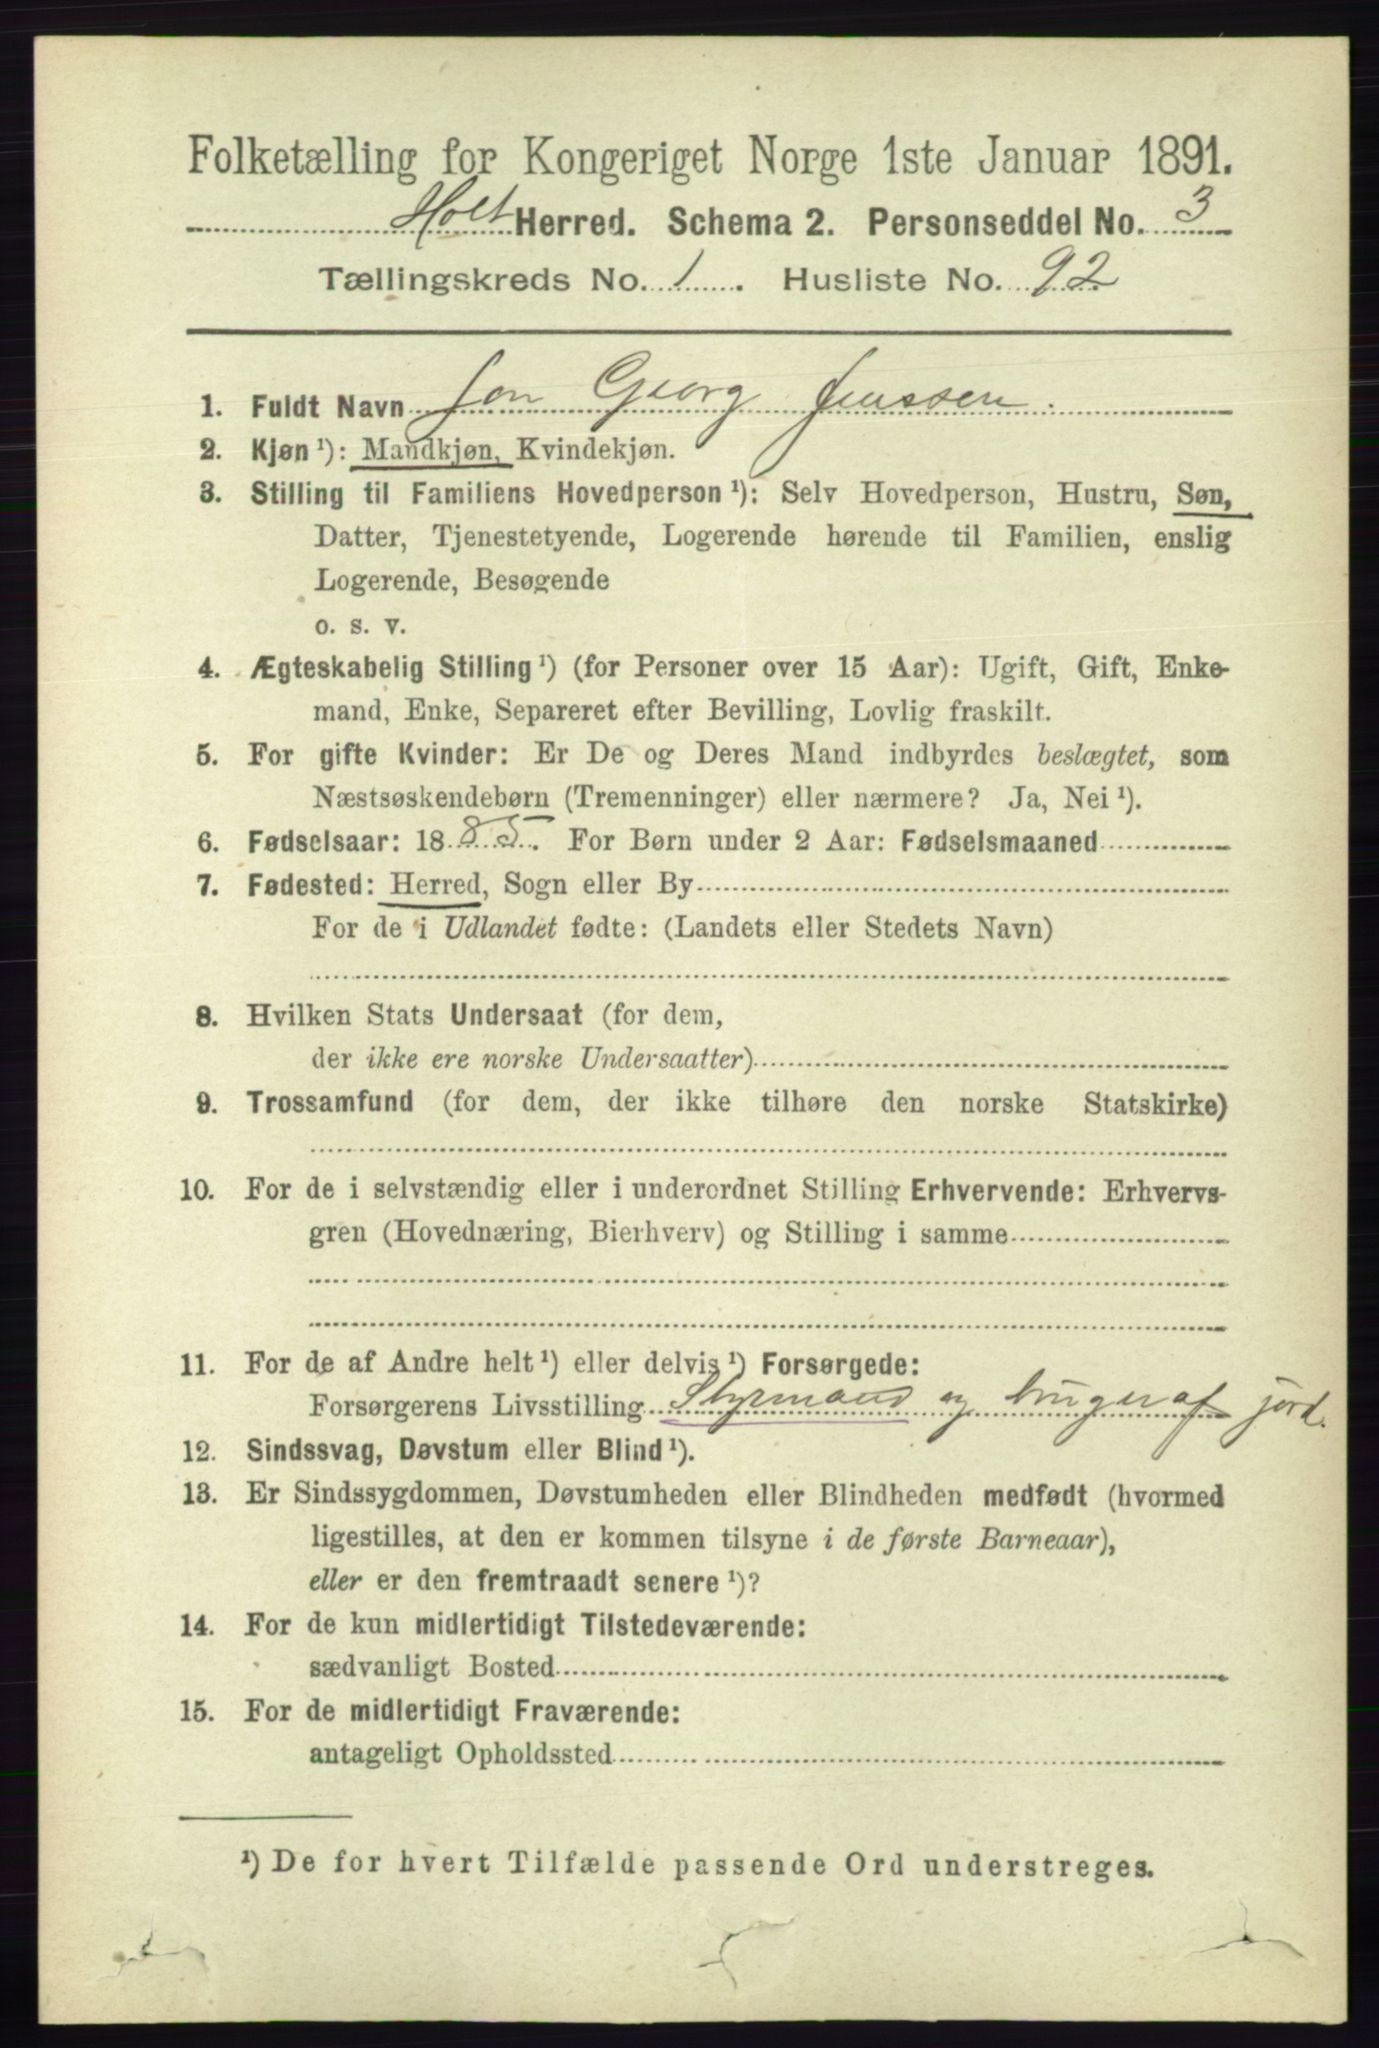 Folketælling for Kongeriget Norge 1ste Januar 1891.
Holt Herred. Schema 2. Personseddel No. 3
Tællingskreds No. 1. Husliste No. 92
1. Fuldt Navn Jon Georg Jenssen.
2. Kjøn ¹): Mandkjøn, Kvindekjøn.
3. Stilling til Familiens Hovedperson ¹): Selv Hovedperson, Hustru, Søn,
Datter, Tjenestetyende, Logerende hørende til Familien, enslig
Logerende, Besøgende
o. s. v.
4. Ægteskabelig Stilling ¹) (for Personer over 15 Aar): Ugift, Gift, Enke-
mand, Enke, Separeret efter Bevilling, Lovlig fraskilt.
5. For gifte Kvinder: Er De og Deres Mand indbyrdes beslægtet, som
Næstsøskendebørn (Tremenninger) eller nærmere? Ja, Nei ¹).
6. Fødselsaar: 1885. For Børn under 2 Aar: Fødselsmaaned
7. Fødested: Herred, Sogn eller By
For de i Udlandet fødte: (Landets eller Stedets Navn)
8. Hvilken Stats Undersaat (for dem,
der ikke ere norske Undersaatter)
9. Trossamfund (for dem, der ikke tilhøre den norske Statskirke)
10. For de i selvstændig eller i underordnet Stilling Erhvervende: Erhvervs-
gren (Hovednæring, Bierhverv) og Stilling i samme
11. For de af Andre helt ¹) eller delvis ¹) Forsørgede:
Forsørgerens Livsstilling Styrmand og bruger af jord.
12. Sindssvag, Døvstum eller Blind ¹).
13. Er Sindssygdommen, Døvstumheden eller Blindheden medfødt (hvormed
ligestilles, at den er kommen tilsyne i de første Barneaar),
eller er den fremtraadt senere ¹)?
14. For de kun midlertidigt Tilstedeværende:
sædvanligt Bosted
15. For de midlertidigt Fraværende:
antageligt Opholdssted
¹) De for hvert Tilfælde passende Ord understreges.